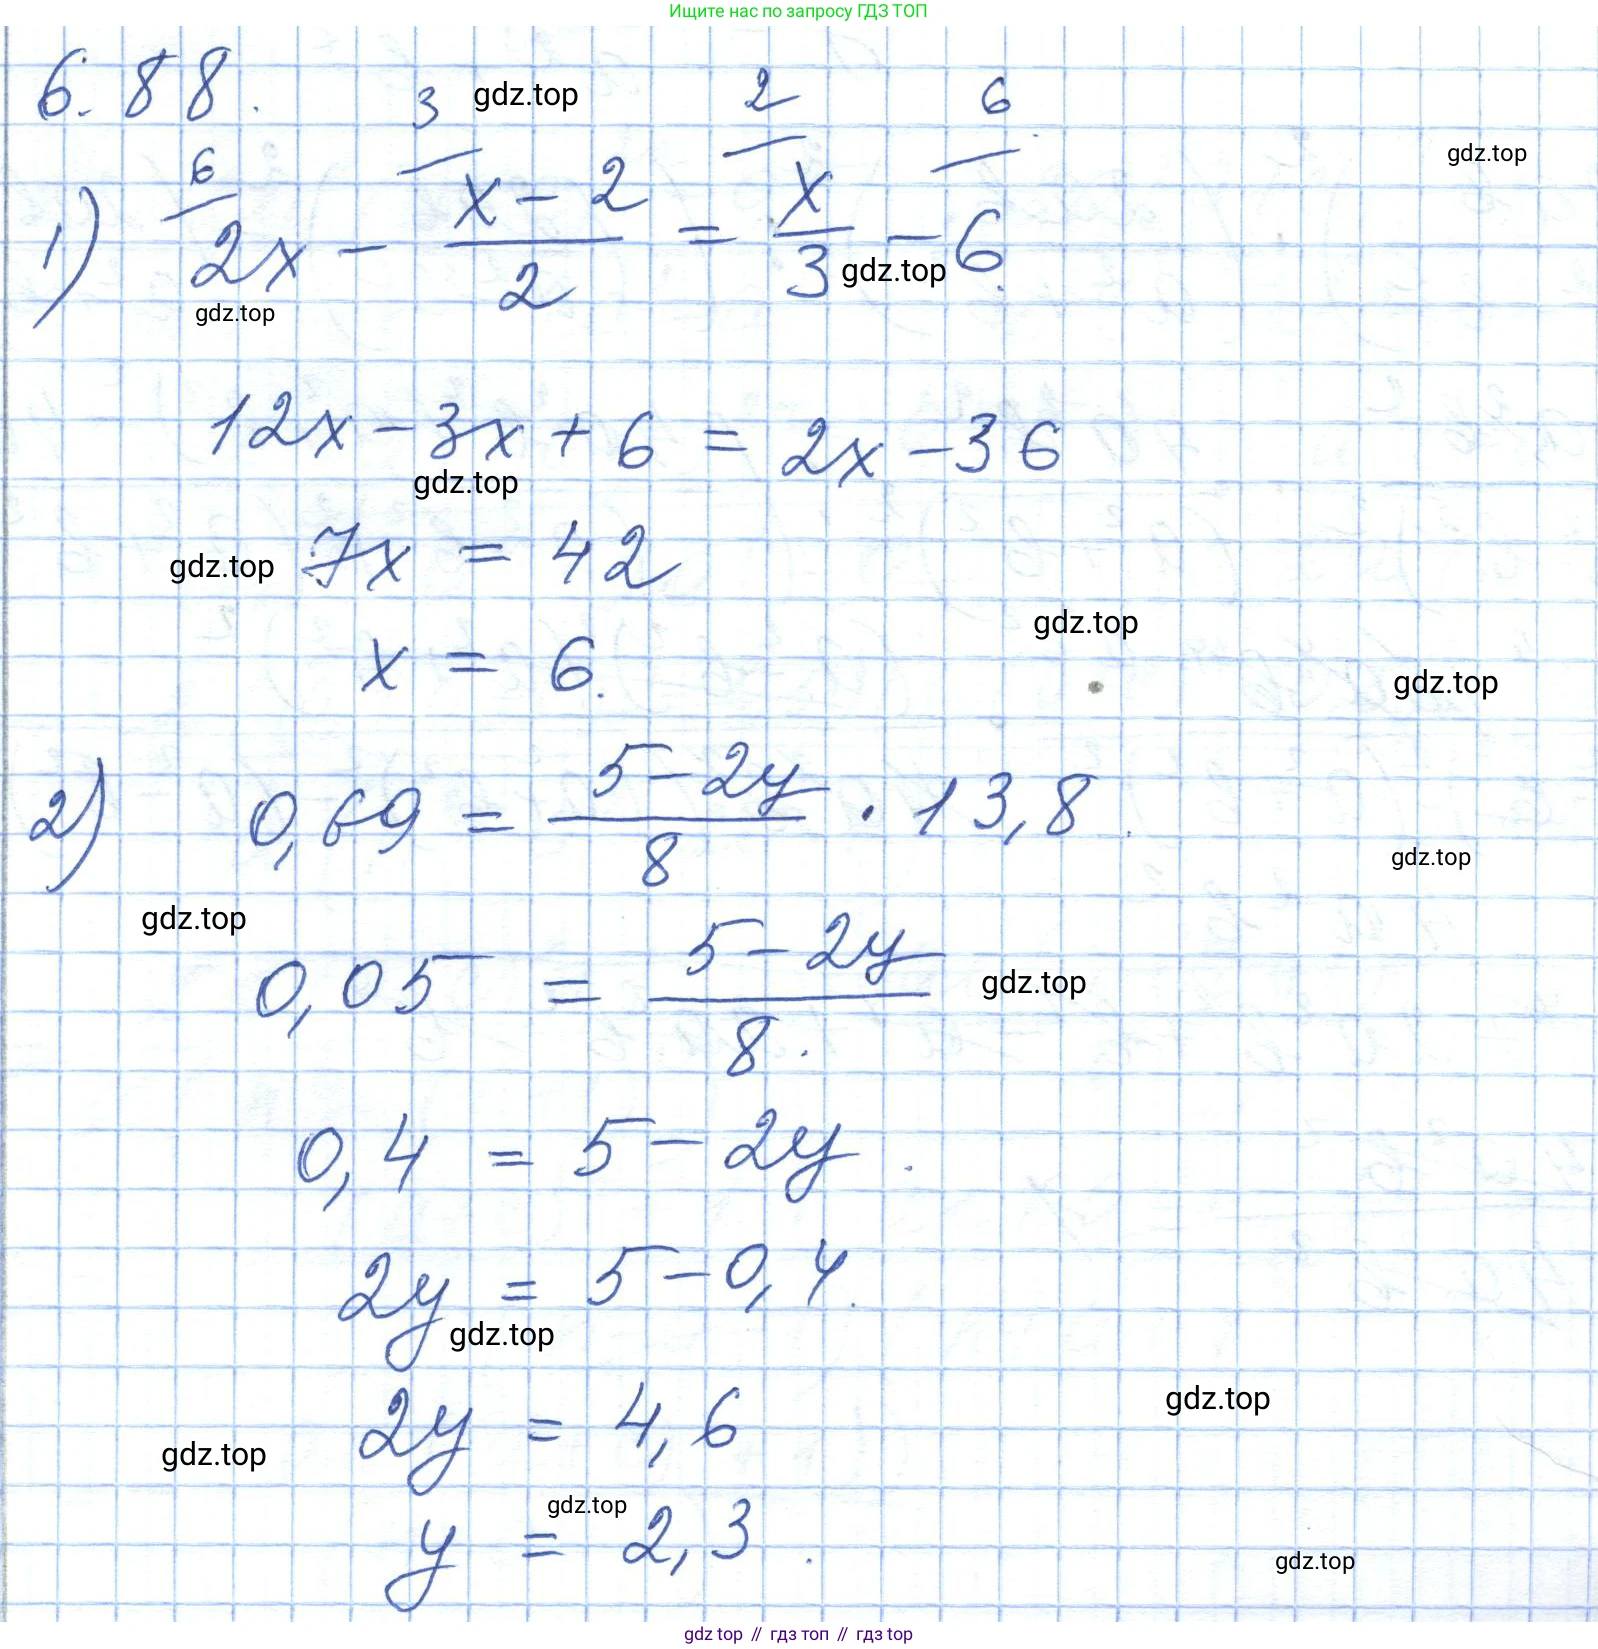 Ищите нас по запросу ГДЗ ТОП
6.88.
gdz.top
gdz.top
6 3 2 6
1) 2x - (x-2)/2 = x/3 - 6.
gdz.top
gdz.top
12x - 3x + 6 = 2x - 36
gdz.top
7x = 42
gdz.top
gdz.top
x = 6.
gdz.top
2) 0,69 = (5-2y)/8 · 13,8.
gdz.top
gdz.top
0,05 = (5-2y)/8.
gdz.top
0,4 = 5 - 2y.
2y = 5 - 0,4.
gdz.top
gdz.top
2y = 4,6
gdz.top
gdz.top
y = 2,3.
gdz.top
gdz top // гдз топ // гдз top